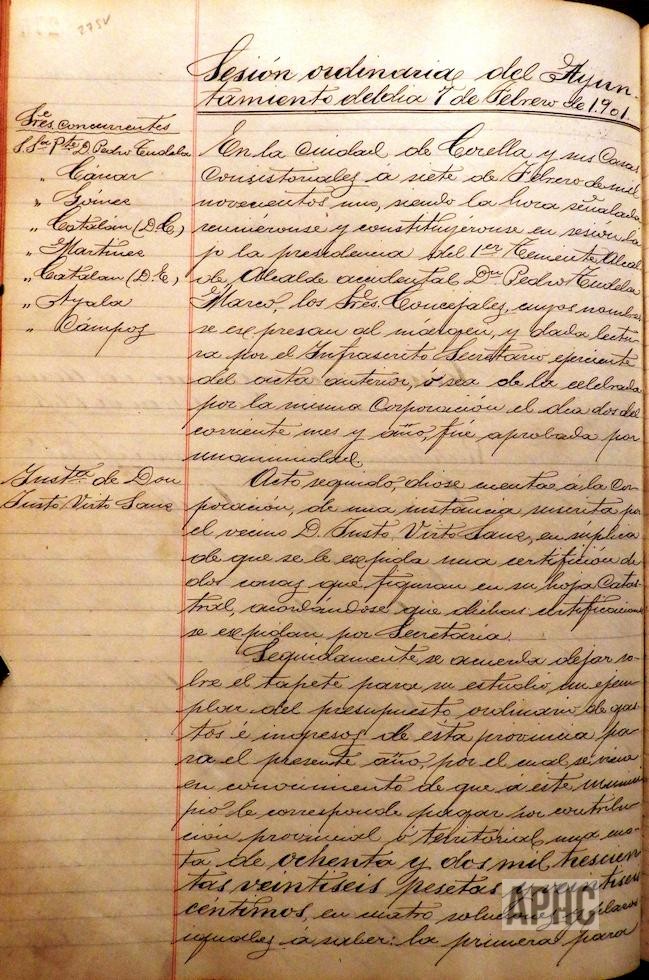 275v
Sesión ordinaria del Ayun-
tamiento del dia 7 de Febrero de 1.901.
Sres. concurrentes
S. Sor. Pte. D. Pedro Tudela
" Canar
" Gómez
" Catalán (D. C.)
" Martinez
" Catalán (D. E.)
" Ayala
" Cámpos
En la ciudad de Corella y sus Casas
Consistoriales a siete de Febrero de mil
novecientos uno, siendo la hora señalada
reuniéronse y constituyéronse en sesion ba-
jo la presidencia del 1er. Teniente Alcal
de, Alcalde accidental Dn. Pedro Tudela
Marco, los Sres. Concejales, cuyos nombres
se expresan al margen, y dada lectu-
ra por el Infrascrito Secretario ejerciente
del acta anterior, ó sea de la celebrada
por la misma Corporación el dia dos del
corriente mes y año, fué aprobada por
unanimidad
Insta. de Don
Justo Virto Sanz
Acto seguido, diose cuenta á la Cor-
poración, de una instancia suscrita por
el vecino D. Justo Virto Sanz, en súplica
de que se le expida una certifición de
dos que figuran en su hoja Catas-
tral, acordándose que dichas certificaciones
se expidan por Secretaria.
Seguidamente se acuerda dejar so-
bre el tapete para su estudio, un ejem-
plar del presupuesto ordinario de gas-
tos é ingresos de ésta provincia pa-
ra el presente año, por el cual se viene
en conocimiento de que á este munici
pio le corresponde pagar por contribu-
ción provincial ó territorial, una cuo-
ta de ochenta y dos mil trescien
tas veintiseis pesetas y veintiseis
céntimos, en cuatro plazos
iguales á saber: la primera para
APHC